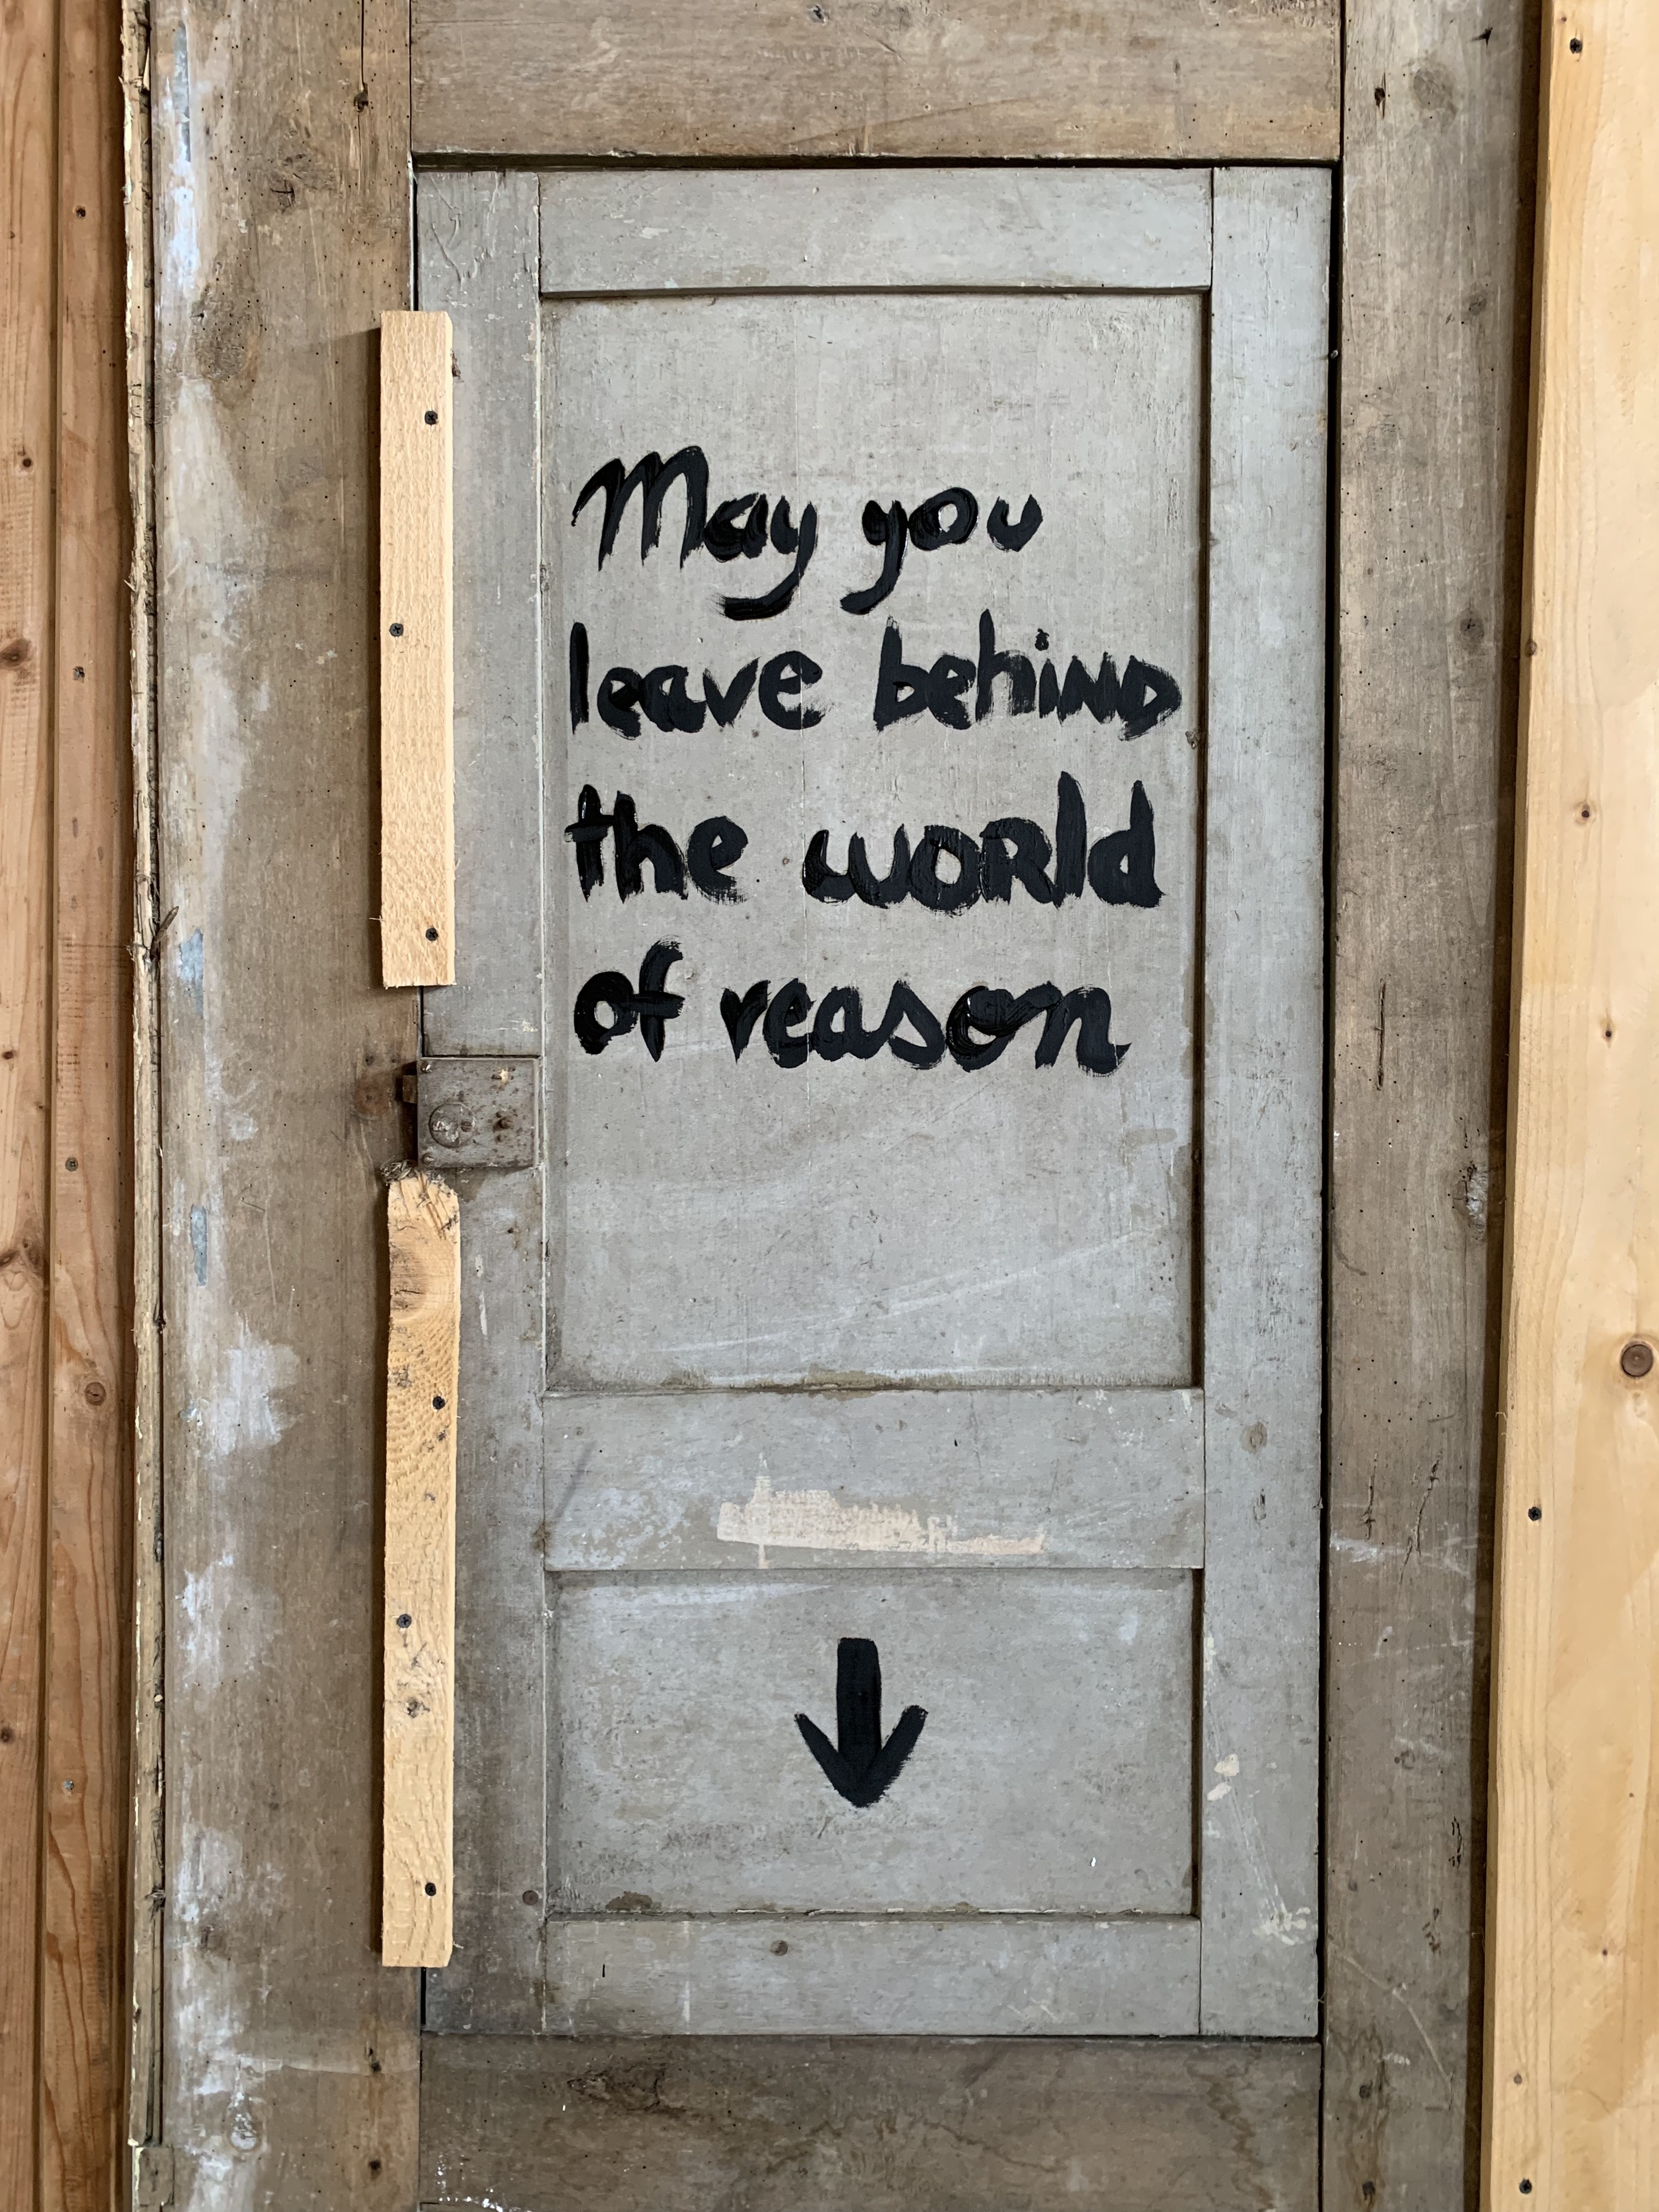 May you
leave behind
the world
of reason